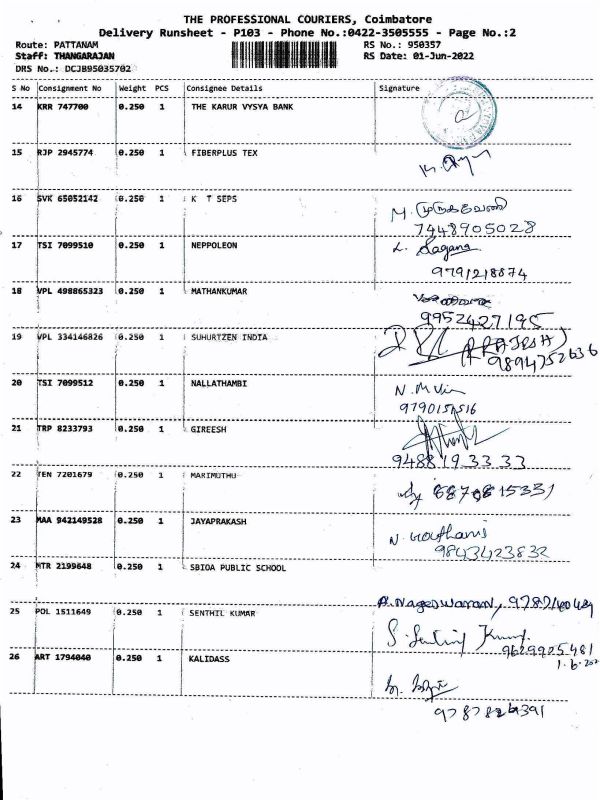 THE PROFESSIONAL COURIERS, Coimbatore
Delivery Runsheet - P103 - Phone No.:0422-3505555 - Page No.:2
Route: PATTANAM RS No.: 950357
Staff: THANGARAJAN RS Date: 01-Jun-2022
DRS No.: DCJB95035702
S No Consignment No Weight PCS Consignee Details Signature
14 KRR 747700 0.250 1 THE KARUR VYSYA BANK
15 RJP 2945774 0.250 1 FIBERPLUS TEX
16 SVK 65052142 0.250 1 K T SEPS
M. முருகேவணி
7448905028
17 TSI 7099510 0.250 1 NEPPOLEON
L. Sagana
9791218874
18 VPL 498865323 0.250 1 MATHANKUMAR
9952427195
19 VPL 334146826 0.250 1 SUHURTZEN INDIA
(R RAJESH)
9894752636
20 TSI 7099512 0.250 1 NALLATHAMBI
9790151516
21 TRP 8233793 0.250 1 GIREESH
9488193333
22 TEN 7201679 0.250 1 MARIMUTHU
6870815331
23 MAA 942149528 0.250 1 JAYAPRAKASH
N. Gowthami
9843423832
24 MTR 2199648 0.250 1 SBIOA PUBLIC SCHOOL
A. Nageswaran,
25 POL 1511649 0.250 1 SENTHIL KUMAR
S. Senthil Kumar
9629905481
26 ART 1794040 0.250 1 KALIDASS